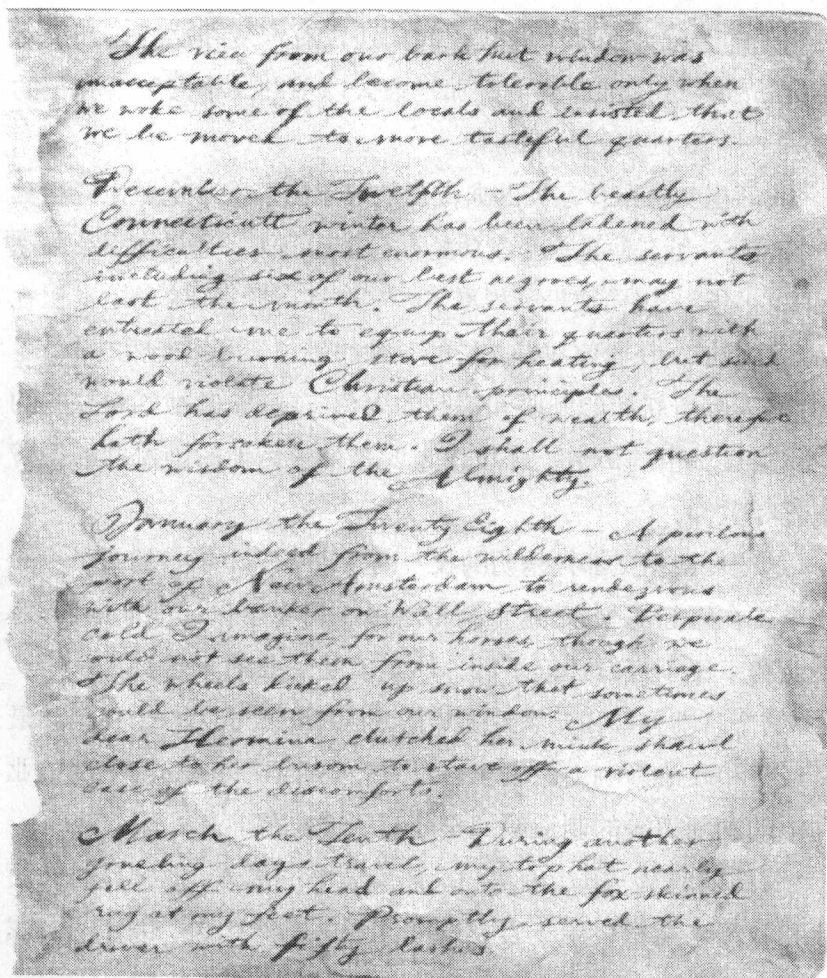 The view from our bark hut window was
unacceptable, and become tolerable only when
we woke some of the locals and insisted that
we be moved to more tasteful quarters.
December the Twelfth – The beastly
Connecticutt winter has been ladened with
difficulties most enormous. The servants
including six of our best negroes, may not
last the month. The servants have
entreated me to equip their quarters with
a wood burning stove for heating, but such
would violate Christian principles. The
Lord has deprived them of wealth, therefore
hath forsaken them. I shall not question
the wisdom of the Almighty.
January the Twenty Eighth – A perilous
journey indeed from the wilderness to the
port of New Amsterdam to rendezvous
with our banker on Wall Street. Desperate
cold I imagine, for our horses, though we
could not see them from inside our carriage.
The wheels kicked up snow that sometimes
could be seen from our window. My
dear Hermina clutched her mink shawl
close to her busom to stave off a violent
case of the discomforts.
March the Tenth – During another
grueling days travel, my top hat nearly
fell off my head and onto the fox skinned
rug at my feet. Promptly served the
driver with fifty lashes.